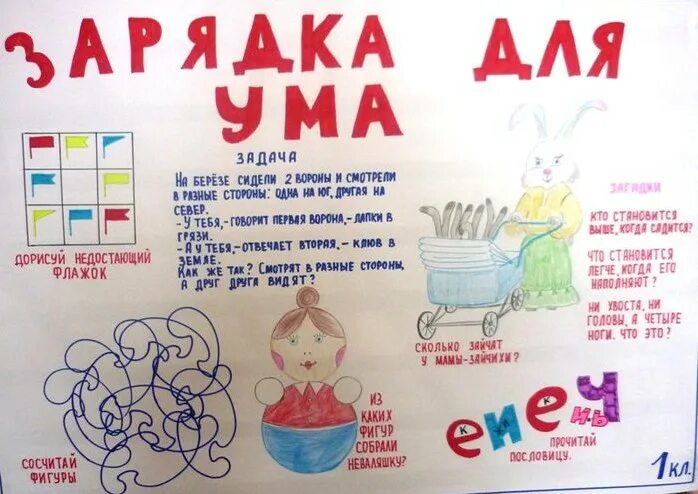 ЗАРЯДКА ДЛЯ
УМА
ЗАДАЧА
НА БЕРЁЗЕ СИДЕЛИ 2 ВОРОНЫ И СМОТРЕЛИ
В РАЗНЫЕ СТОРОНЫ: ОДНА НА ЮГ, ДРУГАЯ НА
СЕВЕР.
- У ТЕБЯ,- ГОВОРИТ ПЕРВАЯ ВОРОНА,- ЛАПКИ В
ГРЯЗИ.
- А У ТЕБЯ,- ОТВЕЧАЕТ ВТОРАЯ,- КЛЮВ В
ЗЕМЛЕ.
КАК ЖЕ ТАК? СМОТРЯТ В РАЗНЫЕ СТОРОНЫ,
А ДРУГ ДРУГА ВИДЯТ?
ДОРИСУЙ НЕДОСТАЮЩИЙ
ФЛАЖОК
ЗАГАДКИ
КТО СТАНОВИТСЯ
ВЫШЕ, КОГДА САДИТСЯ?
ЧТО СТАНОВИТСЯ
ЛЕГЧЕ, КОГДА ЕГО
НАПОЛНЯЮТ?
НИ ХВОСТА, НИ
ГОЛОВЫ, А ЧЕТЫРЕ
НОГИ. ЧТО ЭТО?
СКОЛЬКО ЗАЙЧАТ
У МАМЫ-ЗАЙЧИХИ?
СОСЧИТАЙ
ФИГУРЫ
ИЗ
КАКИХ
ФИГУР
СОБРАЛИ
НЕВАЛЯШКУ?
ПРОЧИТАЙ
ПОСЛОВИЦУ.
1 КЛ.